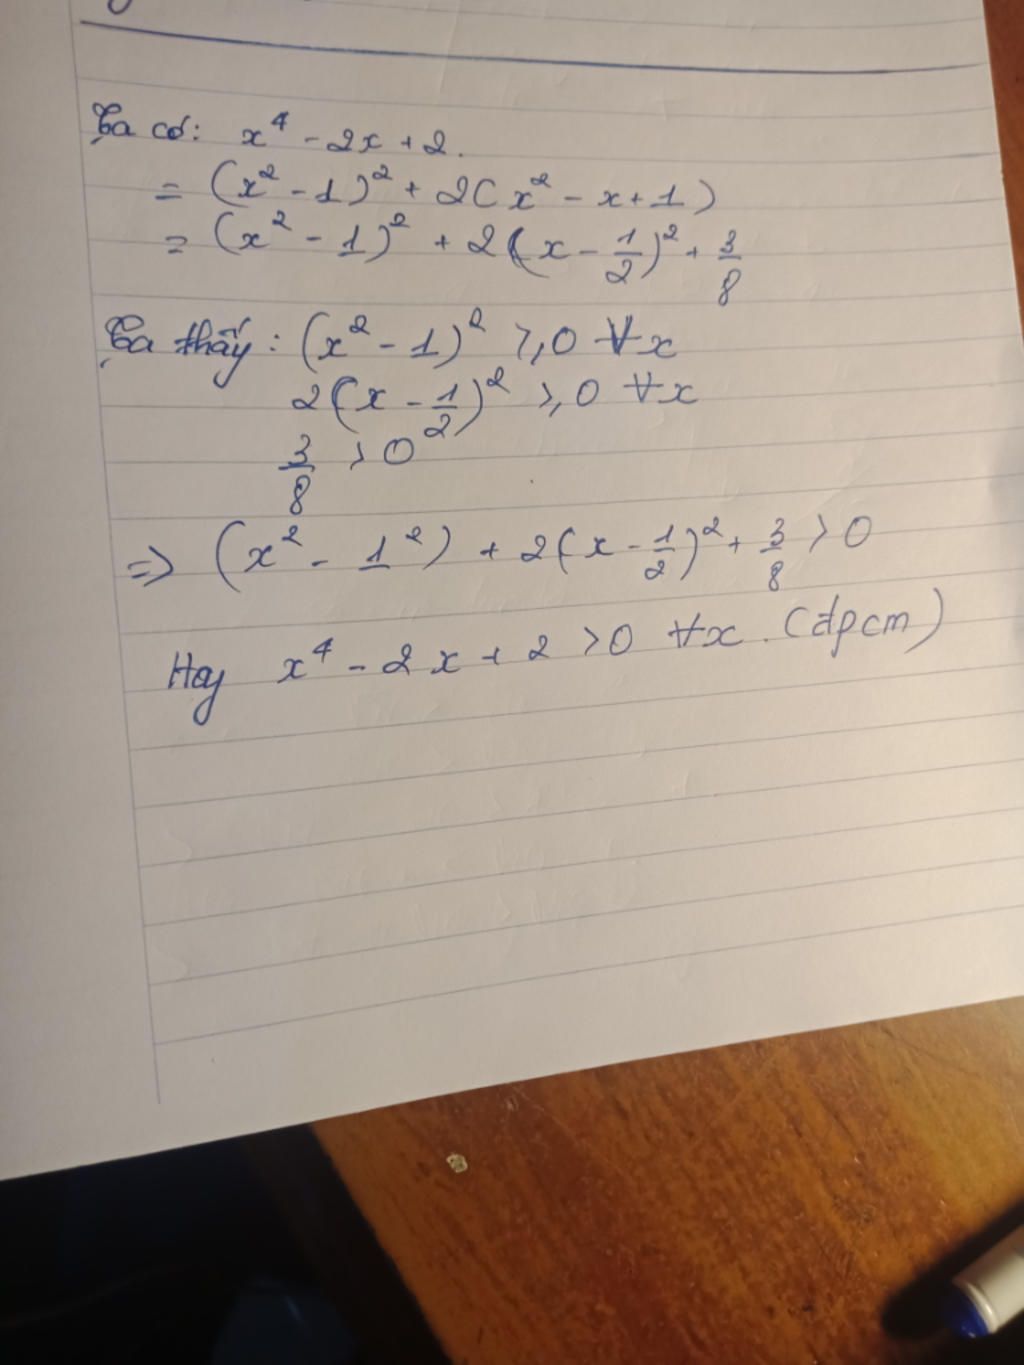 Ta có: x⁴ - 2x + 2.
= (x² - 1)² + 2(x² - x + 1)
= (x² - 1)² + 2(x - 1/2)² + 3/8
Ta thấy: (x² - 1)² ≥ 0 ∀x
2(x - 1/2)² ≥ 0 ∀x
3/8 > 0
=> (x² - 1²) + 2(x - 1/2)² + 3/8 > 0
Hay x⁴ - 2x + 2 > 0 ∀x. (đpcm)